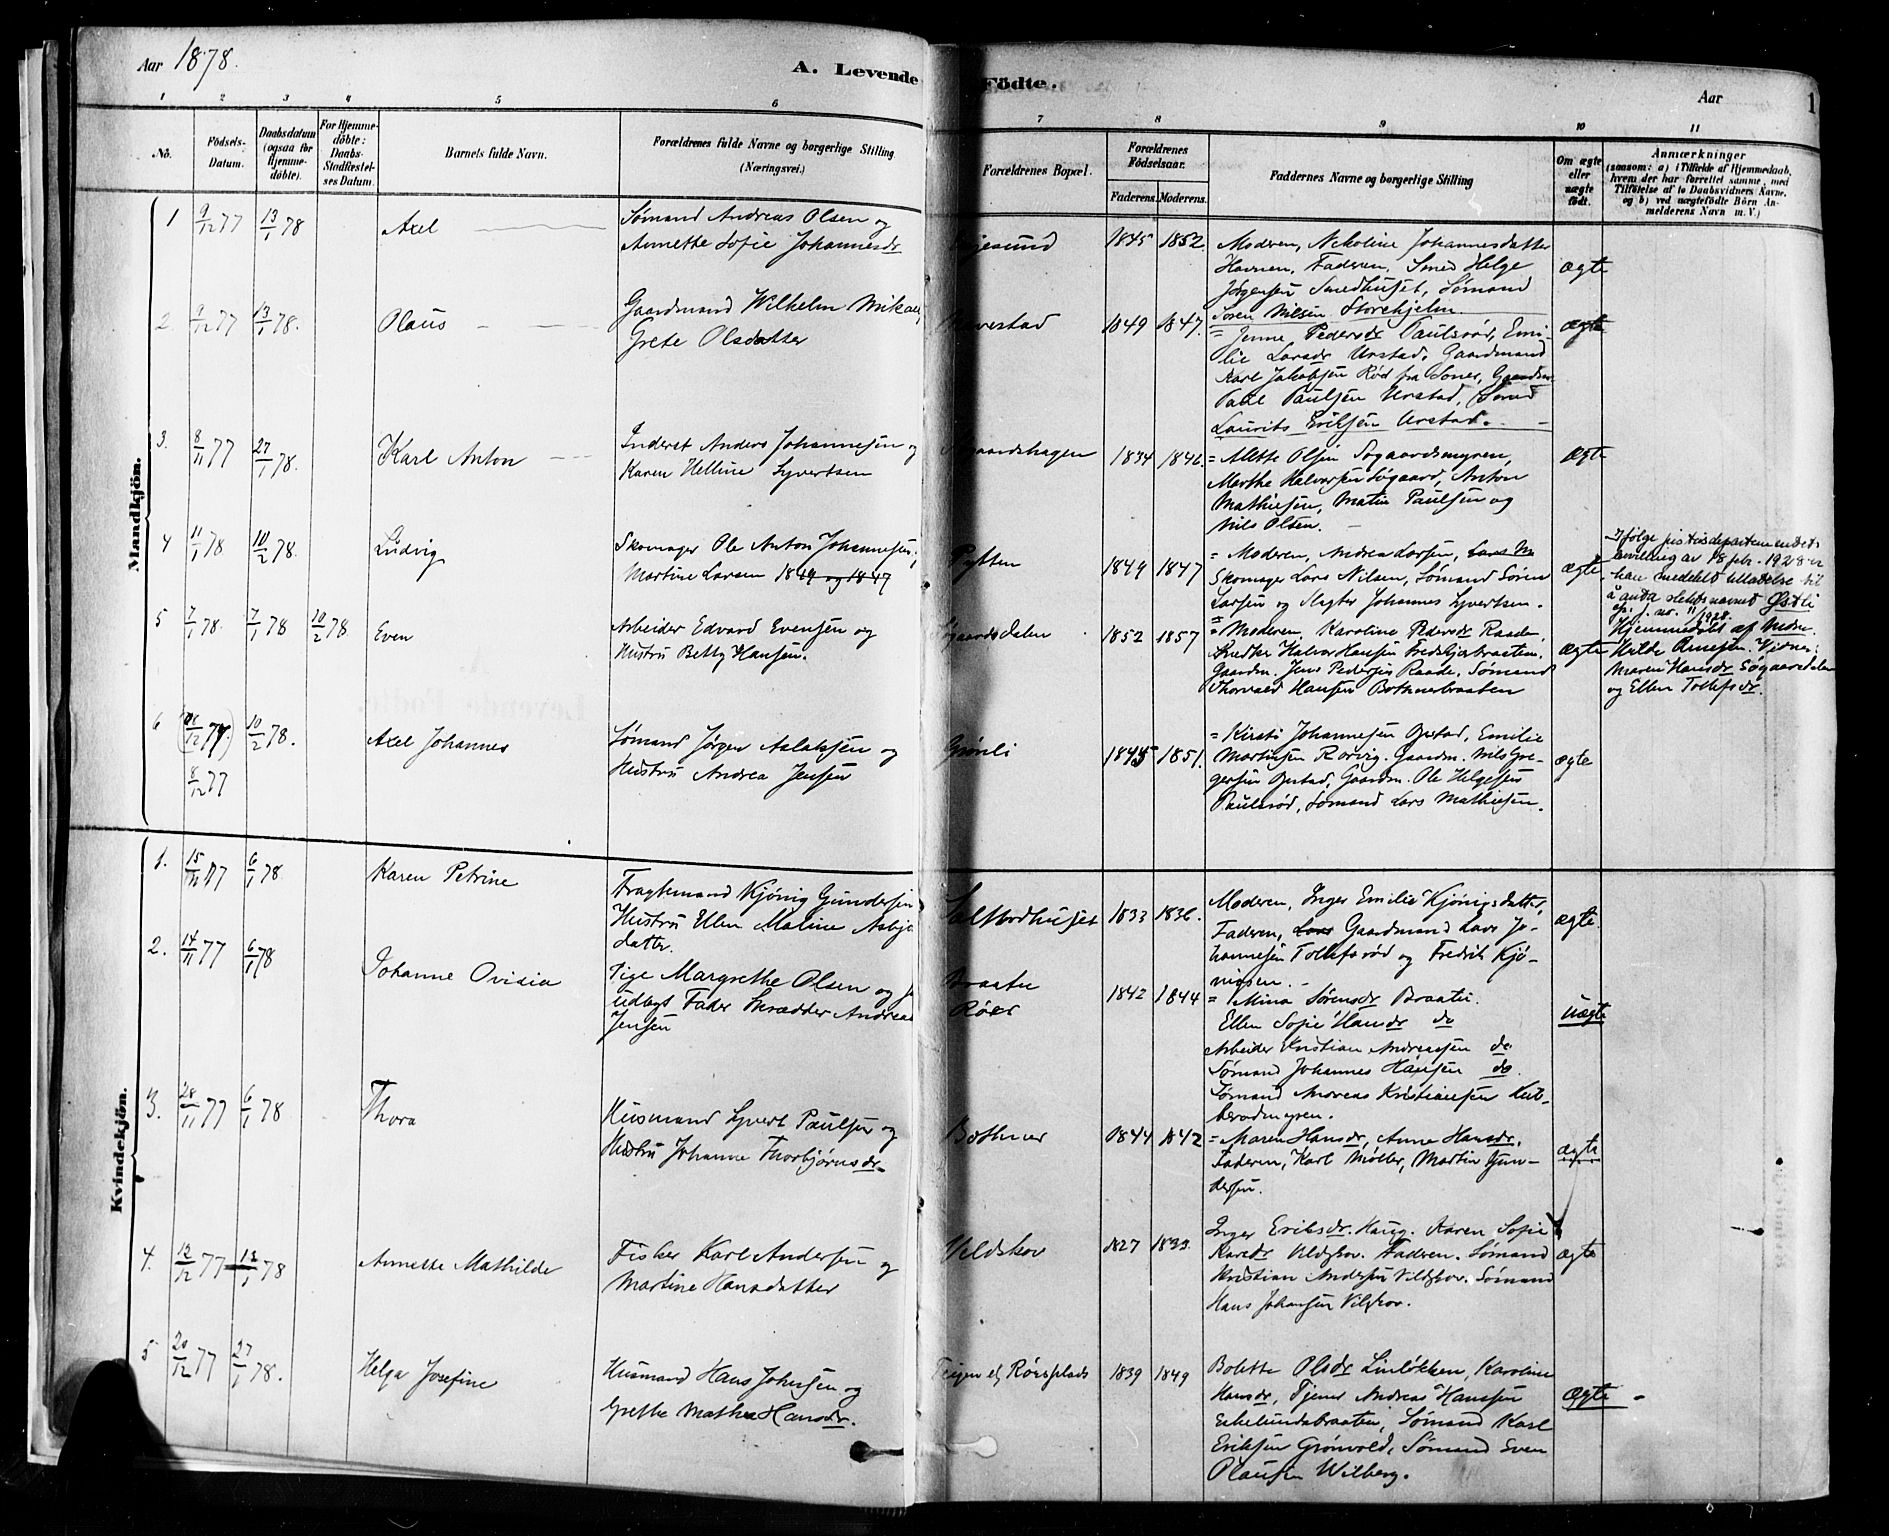 Aar 1878.
A. Levende Födte.
Aar
1
1 2 3 4 5 6 7 8 9 10 11
No.
Födsels-Datum.
Daabsdatum (ogsaa for Hjemme-döbte).
For Hjemme-döbte: Daabs-Stadfæstel-ses Datum.
Barnets fulde Navn.
Forældrenes fulde Navne og borgerlige Stilling (Næringsvei.)
Forældrenes Bopæl.
Forældrenes Födselsaar.
Faderens. Moderens.
Faddernes Navne og borgerlige Stilling
Om ægte eller uægte födt.
Anmærkninger
(saasom: a) i Tilfælde af Hjemmedaab, hvem der har forrettet samme, med Tilföielse af to Daabsvidners Navne, og b) ved uægtefödte Börn An-melderens Navn m. V.)
Mandkjön.
1 9/12 77 13/1 78 Axel
Sømand Andreas Olsen og
Annette Sofie Johannesdr
1845 1852.
Moderen, Nikoline Johannesdatter
Havnen, Faderen, Smed Helge
Jørgensen Smedhuset, Sømand
Søren Nilsen Storehjelm.
ægte
2. 9/12 77 13/1 78. Olaus
Gaardmand Wilhelm Mikael
Grete Olsdatter
1849 1847.
= Jenne Pedersdr Paulsrød, Emi-
lie Larsdr Urstad, Gaardmand
Karl Jakobsen Rød fra Soner, Gaardm
Paul Paulsen Urstad,
Laurits Eriksen Urstad.
ægte
3. 8/11 77 27/1 78. Karl Anton
Inderst Anders Johannesen og
Karen Helline Syvertsen
1834 1842.
= Mette Olsen Søgaardsmyren,
Marthe Halvorsen Søgaard, Anton
Mathisen, Matie Paulsen og
Nils Olsen.
ægte
4 11/1 78 10/2 78. Ludvig
Skomager Ole Anton Johannesen,
Martine Larsen 1849 og 1847
Pytten
1849 1847
= Moderen, Andrea Larsen,
Skomager Lars Nilsen, Sømand Søren
Larsen og Slagter Johannes Syvertsen.
ægte
Ifølge justisdepartementets
bevilling av 18 febr. 1928 er
han meddelt tilladelse til
å anta slektsnavnet Østli
5 7/1 78. 7/1 78 10/2 78. Even
Arbeider Edvard Evensen og
Hustru Betty Hansen.
1852 1857
= Moderen, Karoline Pedersdr Raade,
Snedker Halvor Hansen
Gaardm. Jens Pedersen Raade, Sømand
Thorvald Hansen Bothnerbraaten
ægte
Hjemmedøbt af Mdm.
Hulde Arnesen. Vidner:
Maren Hansdr Søgaardsdalen
og Ellen Tollefsdr.
6 8/12 77 10/2 78. Axel Johannes
Sømand Jørgen Aslaksen og
Hustru Andrea Jensen
Grønli
1845 1851.
= Kirsti Johannesen Opstad, Emilie
Martinsen Rørvig. Gaardm. Nils Gre-
gersen Opstad, Gaardm. Ole Helgesen
Paulsrød, Sømand Lars Mathiesen.
ægte
Kvindekjön.
1. 6/1 78. Karen Petrine
Fragtemand Kjønig Gundersen
Hustru Ellen Maline Asbjø
datter.
Saltbodhuset
1833 1836.
Moderen, Inger Emilie Kjønigsdatter,
Faderen, Gaardmand Lars Jo-
hannesen Tollefsrød og Fredrik Kjø-
nigsen.
ægte.
2. 14/11 77 6/1 78 Johanne Ovisia
Pige Margrethe Olsen og
udlagt Fader Skrædder Andreas
Jensen
Braaten
Røer
1842 1844
= Mina Sørensdr Braaten.
Ellen Sofie Hansdr do
Arbeider Kristian Andreassen do
Sømand Johannes Hansen do.
Sømand Andreas Kristiansen Kub-
berødmyren.
uægte
3. 28/11 77 6/1 78 Thora
Husmand Syvert Paulsen og
Hustru Johanne Thorbjørnsdr.
Bothner
1844 1842
= Maren Hansdr, Anne Hansdr.
Faderen, Karl Møller, Martin Gun-
dersen.
ægte
4. 12/12 77 13/1 78 Annette Mathilde
Fisker Karl Andersen og
Martine Hansdatter
Vildskov
1827 1833.
Inger Eriksdr. Haug. Karen Sofie
Karedr Vildskov. Faderen. Sømand
Kristian Andersen Vildskov. Sømand
Hans Johansen Vilskov.
ægte
5 20/12 77 27/1 78. Helga Josefine
Husmand Hans Johnsen og
Grethe Mathea Hansdr.
Teigen el, Rørsplads
1839 1849
Bolette Olsdr Linløkken, Karoline
Hansdr, Tjener Andreas Hansen
Ekelundsbraaten, Sømand Karl
Eriksen Grønvold, Sømand Even
Olausen Wilberg.
ægte